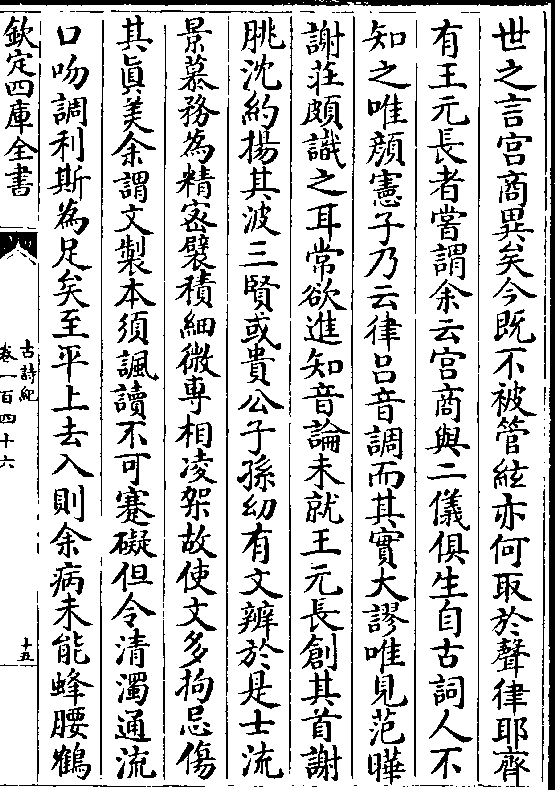 世之言宫商異矣今既不被管絃亦何取於聲律耶齊
有王元長者嘗謂余云宫商與二儀俱生自古詞人不
知之唯顔憲子乃云律吕音調而其實大謬唯見范曄
謝莊頗識之耳常欲進知音論未就王元長創其首謝
朓沈約揚其波三賢或貴公子孫幼有文辨於是士流
景慕務為精宻襞積細微専相凌架故使文多拘忌傷
其真美余謂文製本須諷讀不可蹇礙但令清濁通流
口吻調利斯為足矣至平上去入則余病未能蜂腰鶴
欽定四庫全書
古詩紀
卷一百四十六
十五